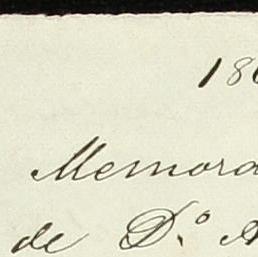 186
Memora
de D.º A